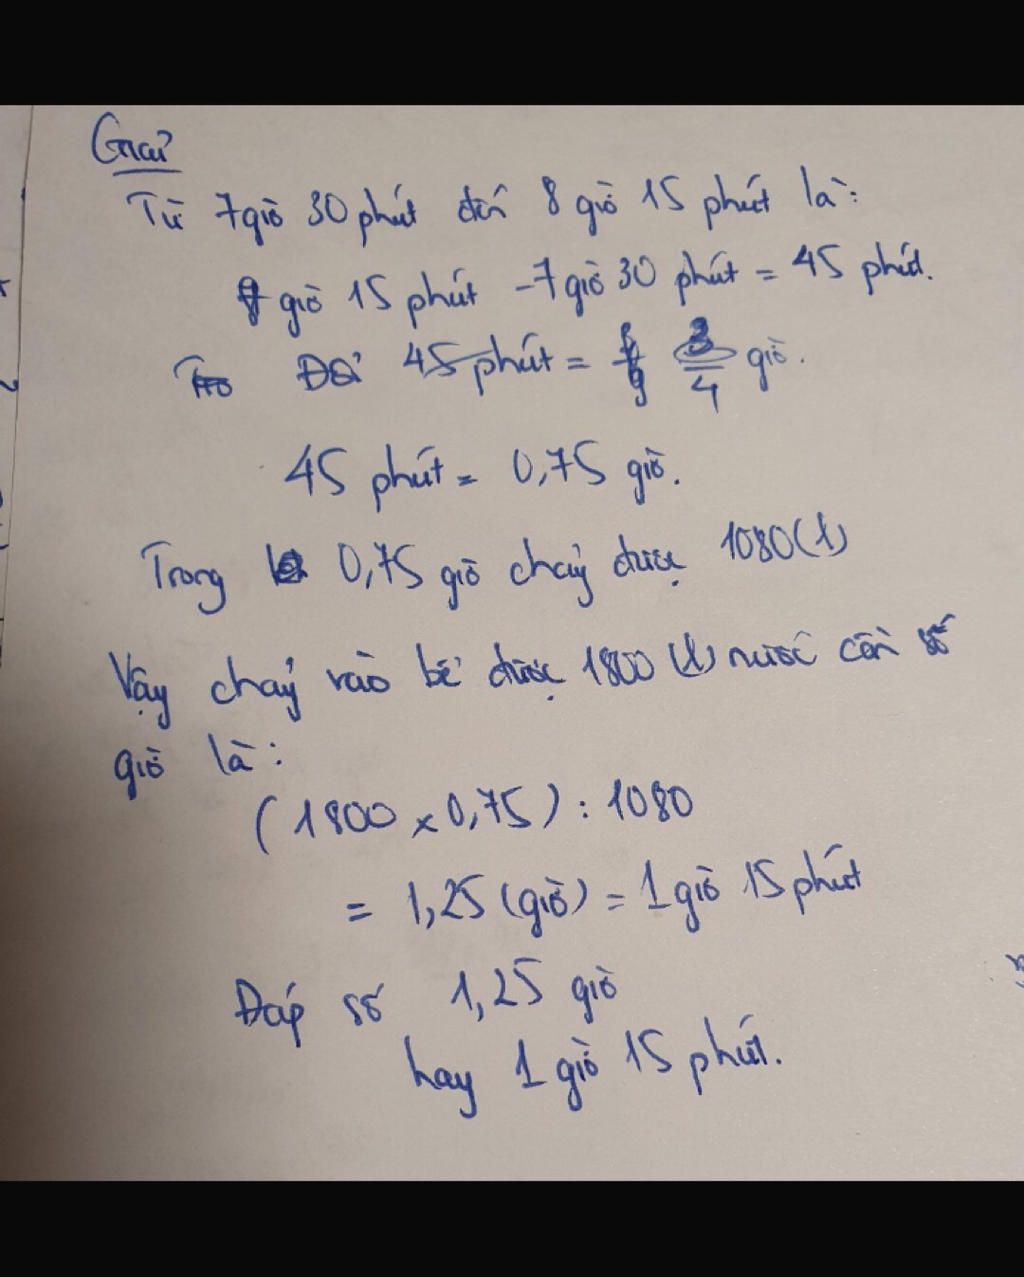 Giải
Từ 7 giờ 30 phút đến 8 giờ 15 phút là:
8 giờ 15 phút - 7 giờ 30 phút = 45 phút.
Đổi 45 phút = 3/4 giờ.
45 phút = 0,75 giờ.
Trong 0,75 giờ chảy được 1080 (l)
Vậy chảy vào bể được 1800 (l) nước cần số
giờ là:
(1800 x 0,75) : 1080
= 1,25 (giờ) = 1 giờ 15 phút
Đáp số 1,25 giờ
hay 1 giờ 15 phút.